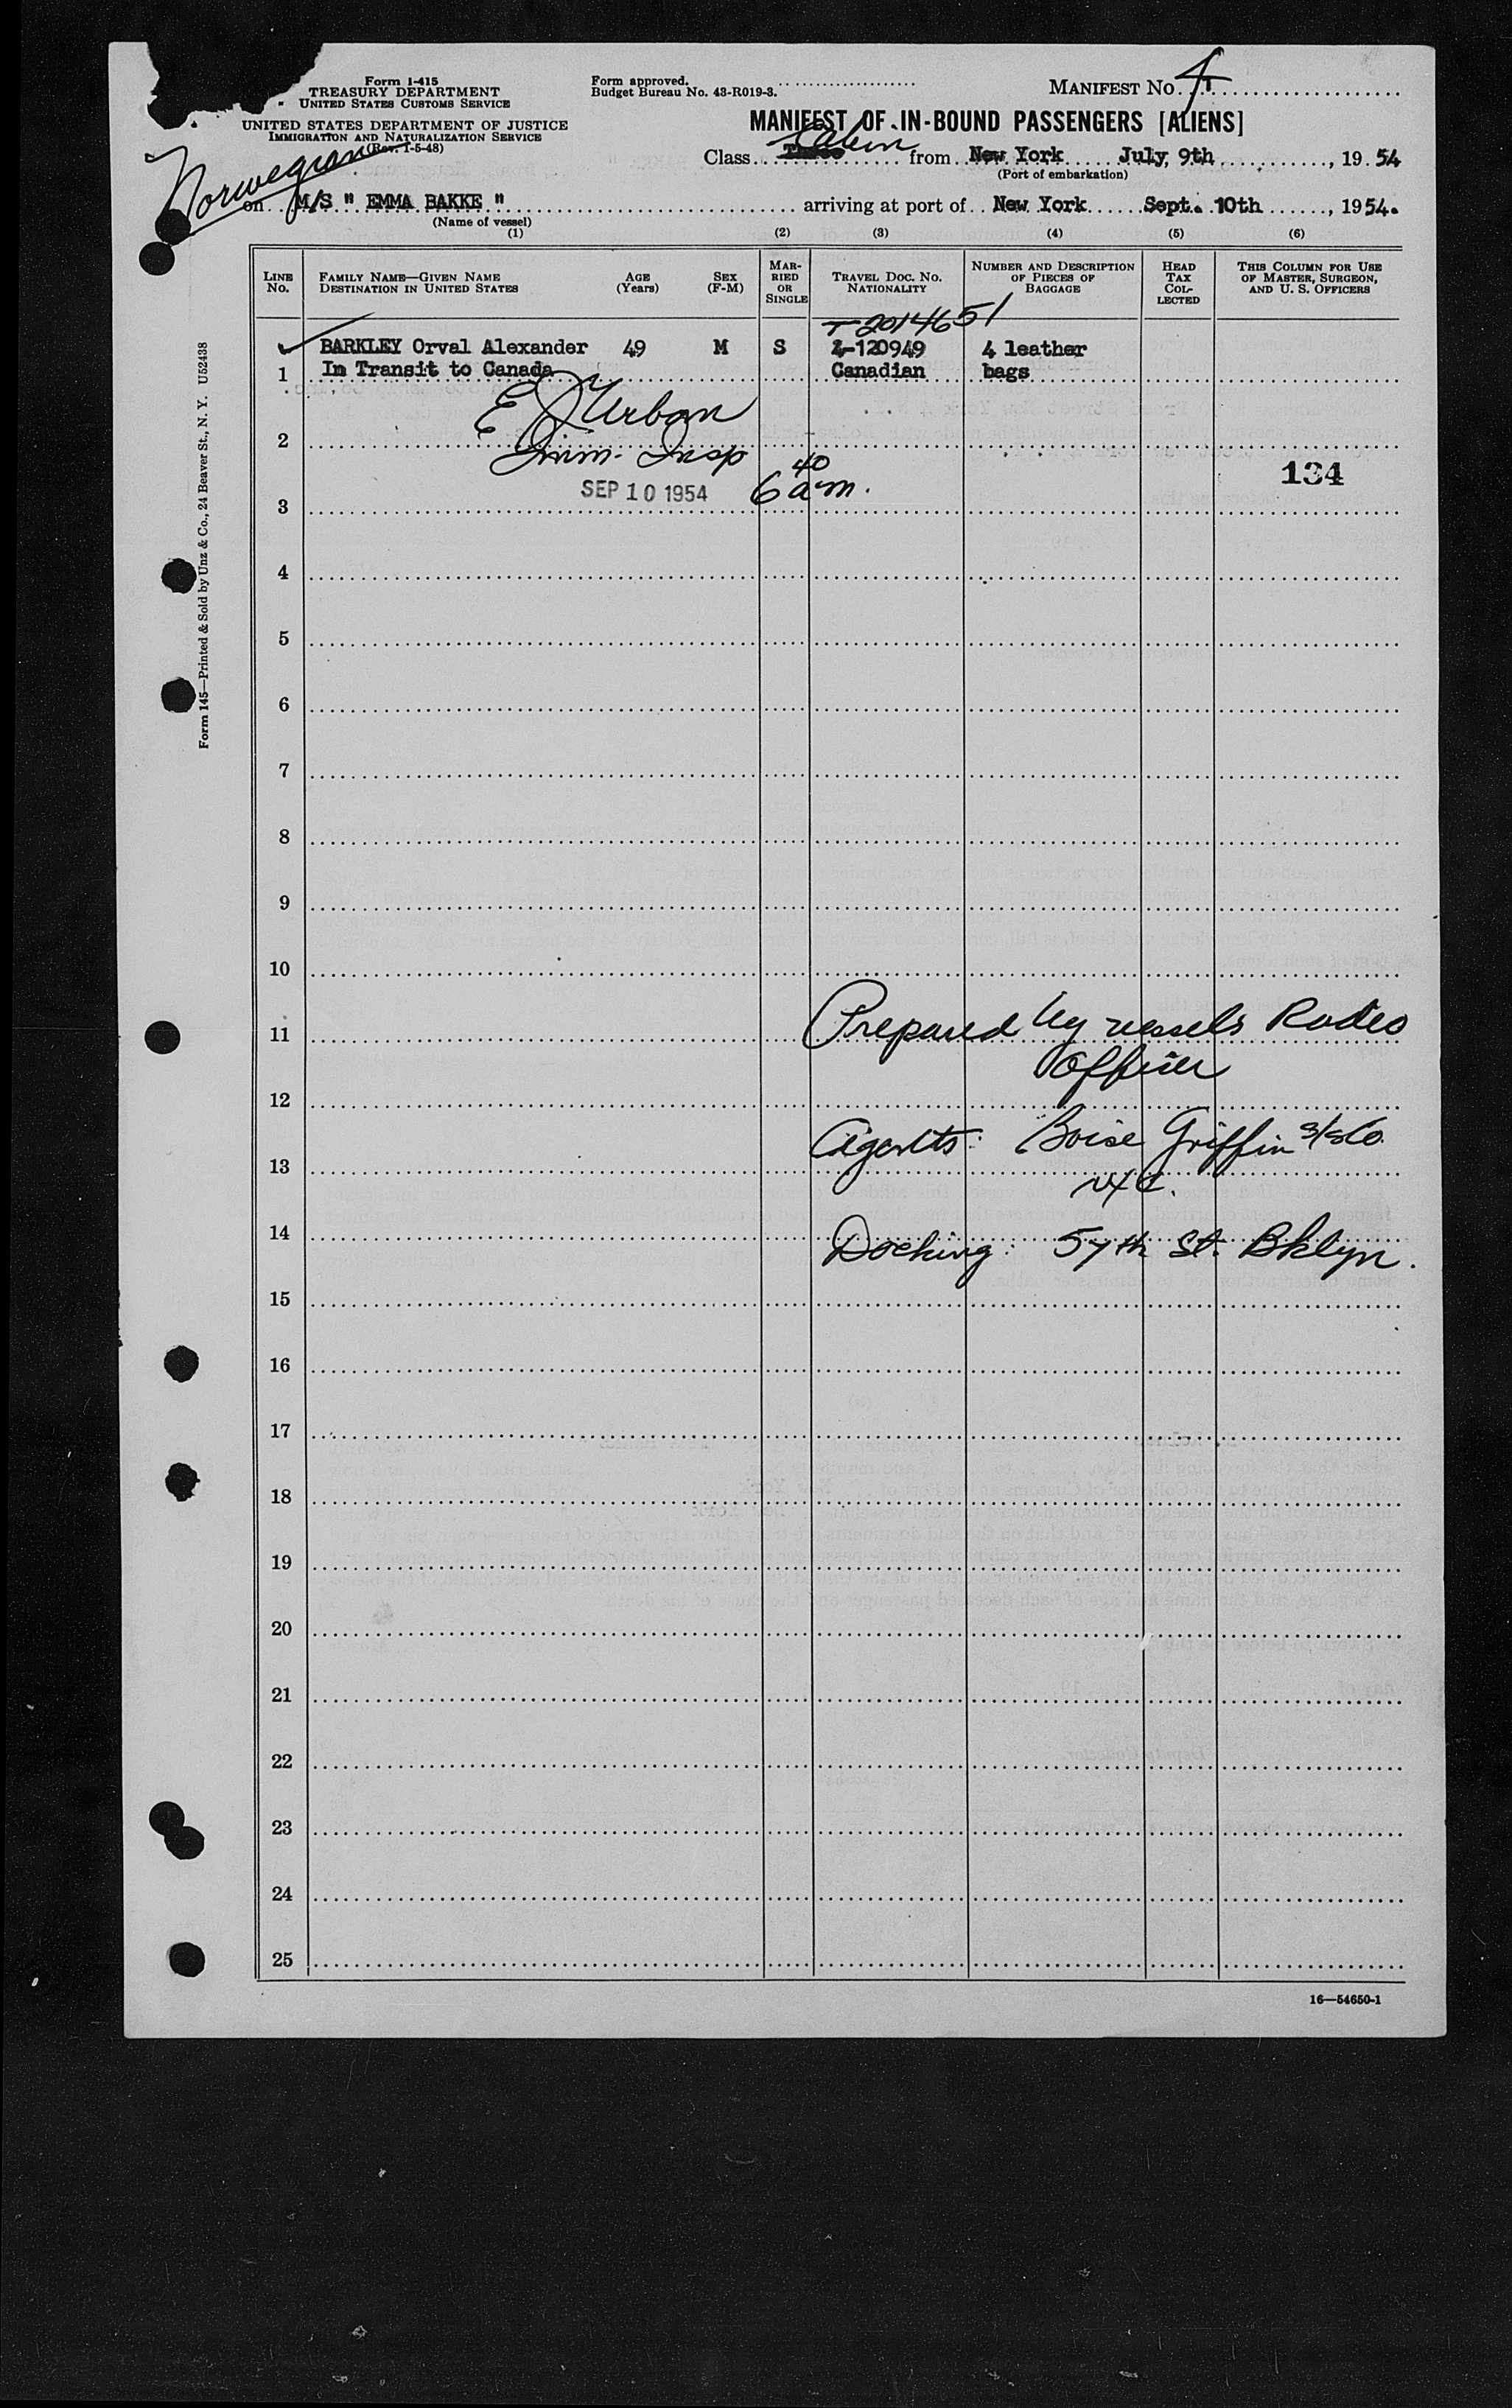 Form I-415
TREASURY DEPARTMENT
UNITED STATES CUSTOMS SERVICE
UNITED STATES DEPARTMENT OF JUSTICE
IMMIGRATION AND NATURALIZATION SERVICE
(Rev. 1-5-48)
Form approved.
Budget Bureau No. 43-R019-3.
MANIFEST No. 4
MANIFEST OF IN-BOUND PASSENGERS [ALIENS]
Norwegian
Class Cabin from New York July, 9th, 1954
(Port of embarkation)
on M/S " EMMA BAKKE " arriving at port of New York Sept. 10th, 1954.
(Name of vessel)
(1) (2) (3) (4) (5) (6)
LINE No. FAMILY NAME—GIVEN NAME DESTINATION IN UNITED STATES AGE (Years) SEX (F-M) MARRIED OR SINGLE TRAVEL DOC. No. NATIONALITY NUMBER AND DESCRIPTION OF PIECES OF BAGGAGE HEAD TAX COLLECTED THIS COLUMN FOR USE OF MASTER, SURGEON, AND U. S. OFFICERS
T-2014651
BARKLEY Orval Alexander 49 M S 4-120949 4 leather
1 In Transit to Canada Canadian bags
E J Urban
2
Imm. Insp
134
SEP 10 1954 6 40 a.m.
3
4
5
6
7
8
9
10
11 Prepared by vessels Radio
Officer
12
Agents: Boise Griffin S/S Co.
13
NYC.
14
Docking: 57th St. Bklyn.
15
16
17
18
19
20
21
22
23
24
25
16—54650-1
Form 145—Printed & Sold by Unz & Co., 24 Beaver St., N. Y. U52438